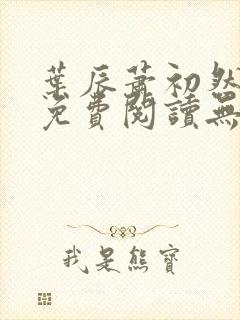 葉辰蕭初然
免費閱讀無
我是熊寶